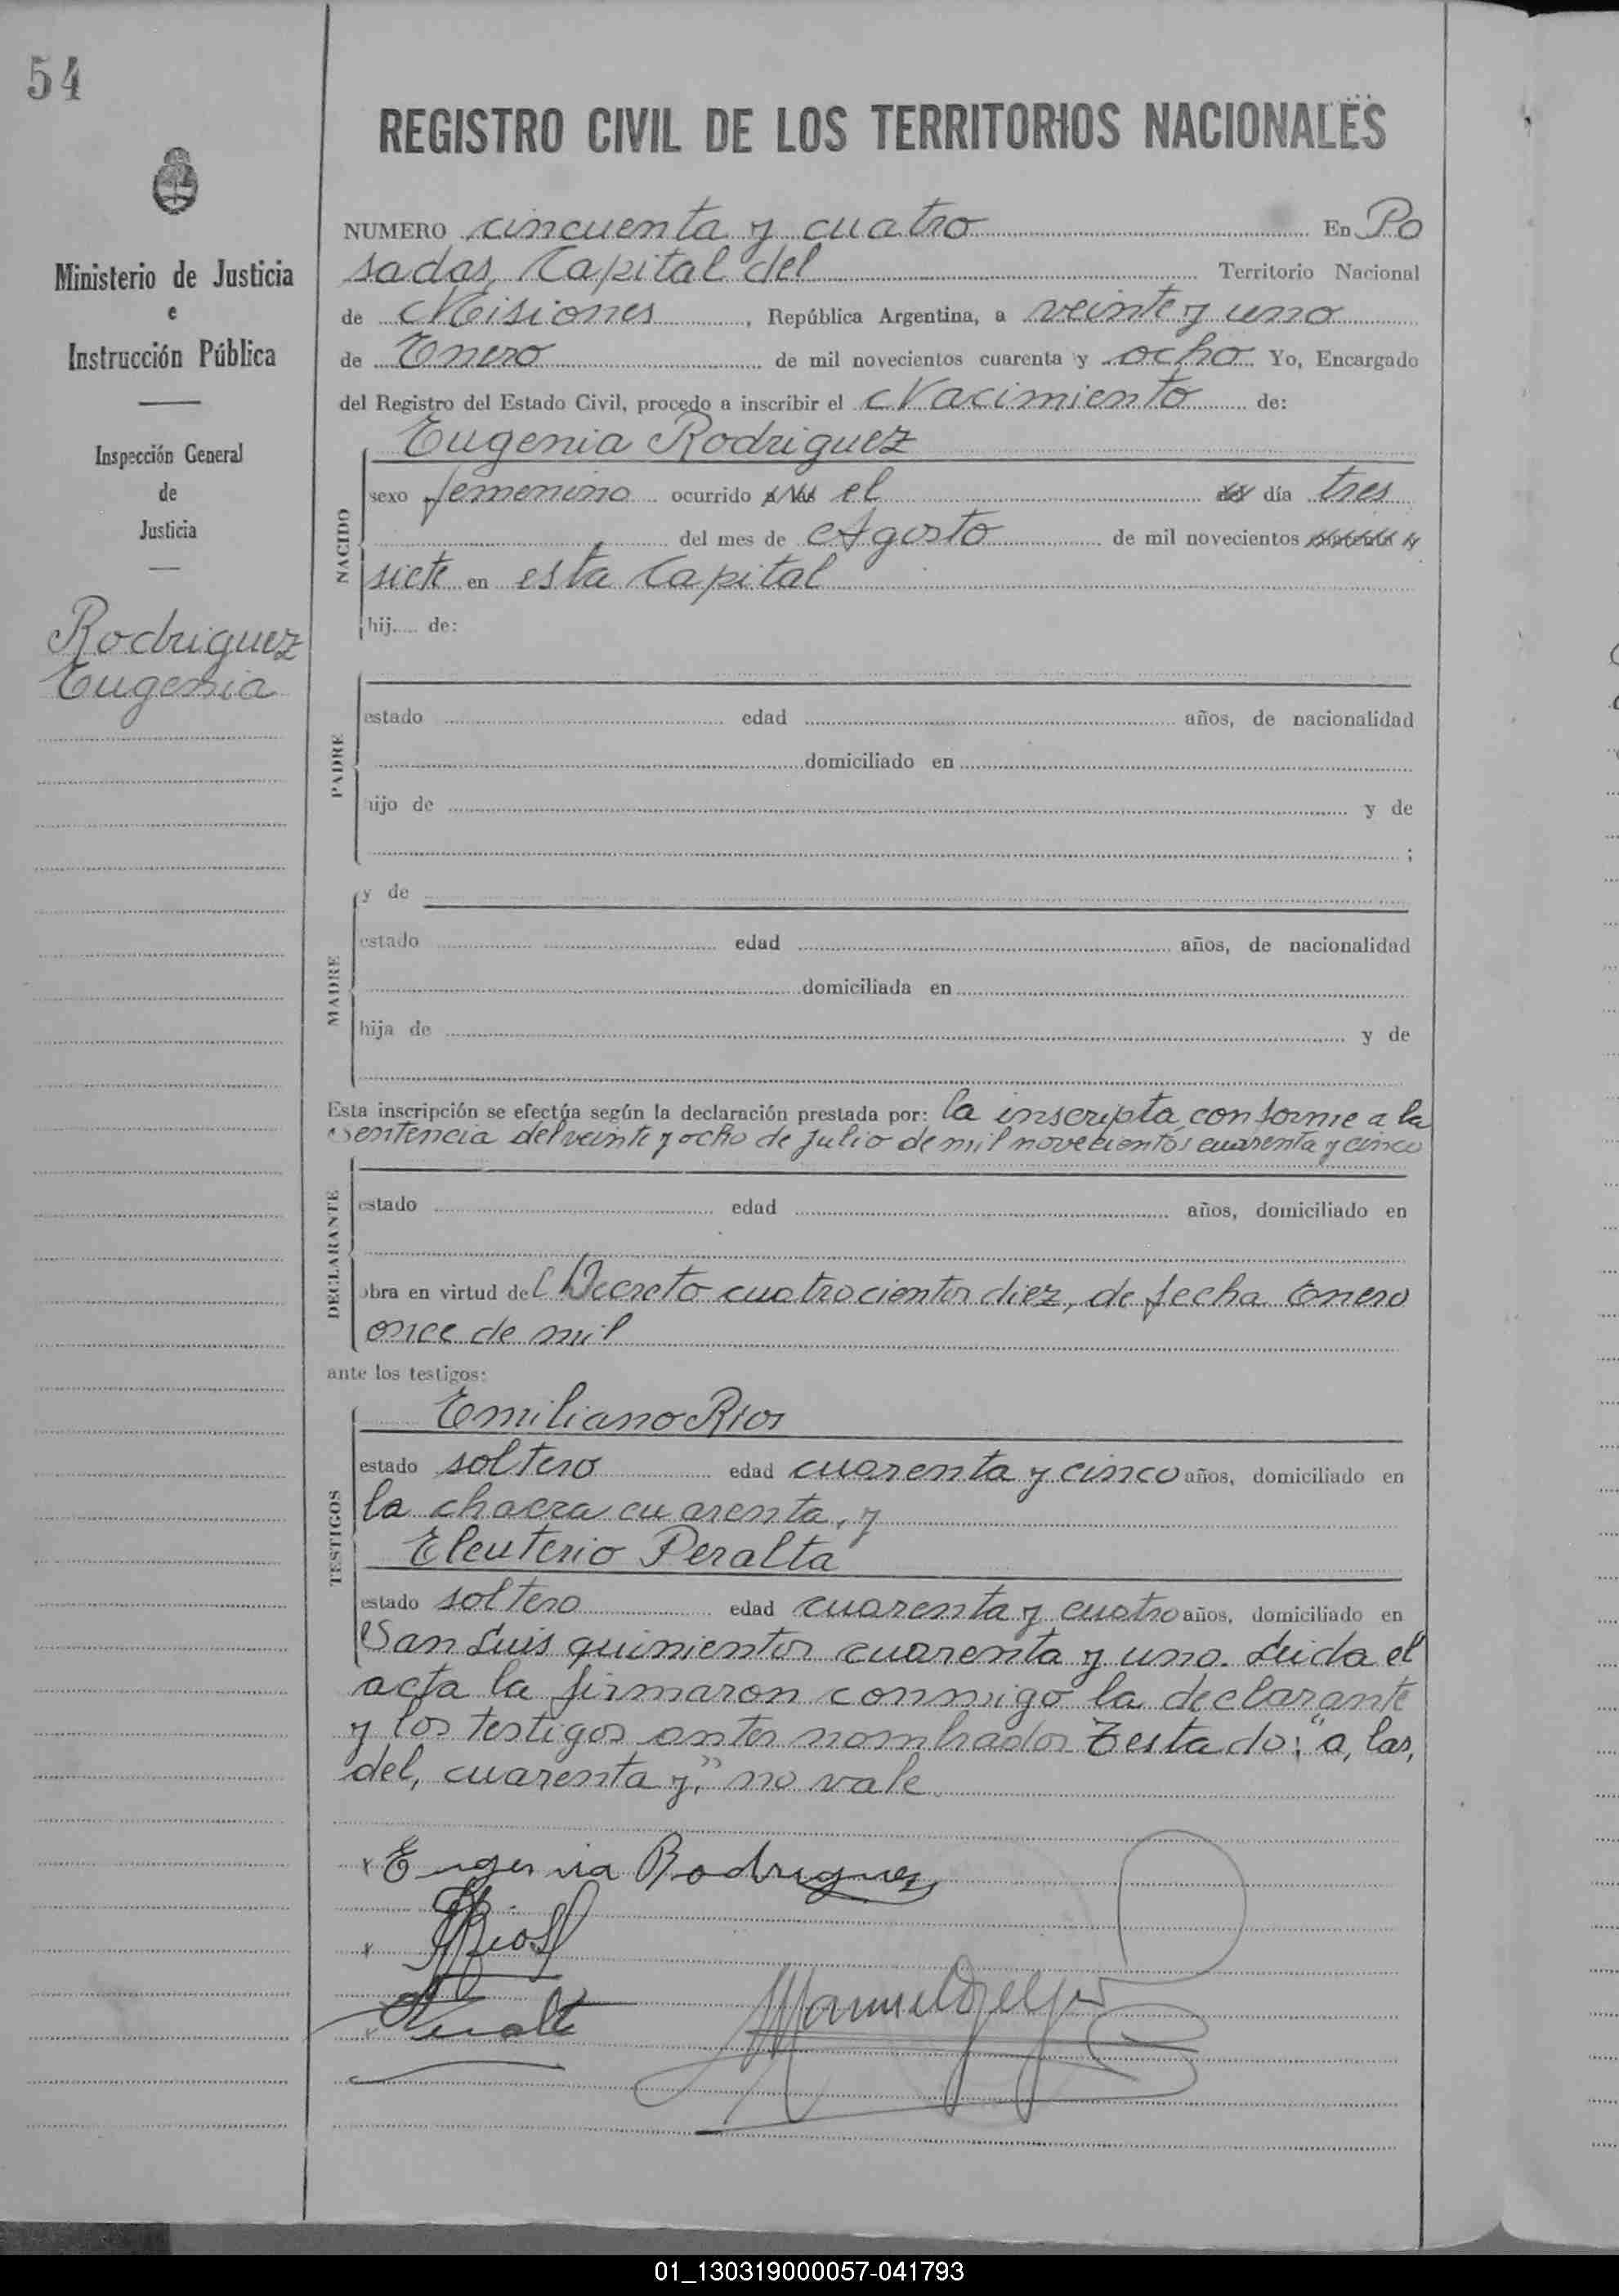 54
REGISTRO CIVIL DE LOS TERRITORIOS NACIONALES
Ministerio de Justicia
e
Instrucción Pública
Inspección General
de
Justicia
Rodriguez
Eugenia
NUMERO cincuenta y cuatro En Po
sadas, Capital del Territorio Nacional
de Misiones, República Argentina, a veinte y uno
de Enero de mil novecientos cuarenta y ocho Yo, Encargado
del Registro del Estado Civil, procedo a inscribir el Nacimiento de:
NACIDO
Eugenia Rodriguez
sexo femenino ocurrido a las el del día tres
del mes de Agosto de mil novecientos cuarenta y
siete en esta Capital
hij.... de:
PADRE
estado edad años, de nacionalidad
domiciliado en
hijo de y de
;
MADRE
y de
estado edad años, de nacionalidad
domiciliada en
hija de y de
Esta inscripción se efectúa según la declaración prestada por: la inscripta, conforme a la
sentencia del veinte y ocho de Julio de mil novecientos cuarenta y cinco
DECLARANTE
estado edad años, domiciliado en
obra en virtud del Decreto cuatrocientos diez, de fecha Enero
once de mil
ante los testigos:
TESTIGOS
Emiliano Rios
estado soltero edad cuarenta y cinco años, domiciliado en
la chacra cuarenta, y
Eleuterio Peralta
estado soltero edad cuarenta y cuatro años, domiciliado en
San Luis quinientos cuarenta y uno. Leida el
acta la firmaron conmigo la declarante
y los testigos antes nombrados Testado: "a, las,
del, cuarenta y," no vale
x Eugenia Rodriguez
x Rios
x Peralta
01_130319000057-041793